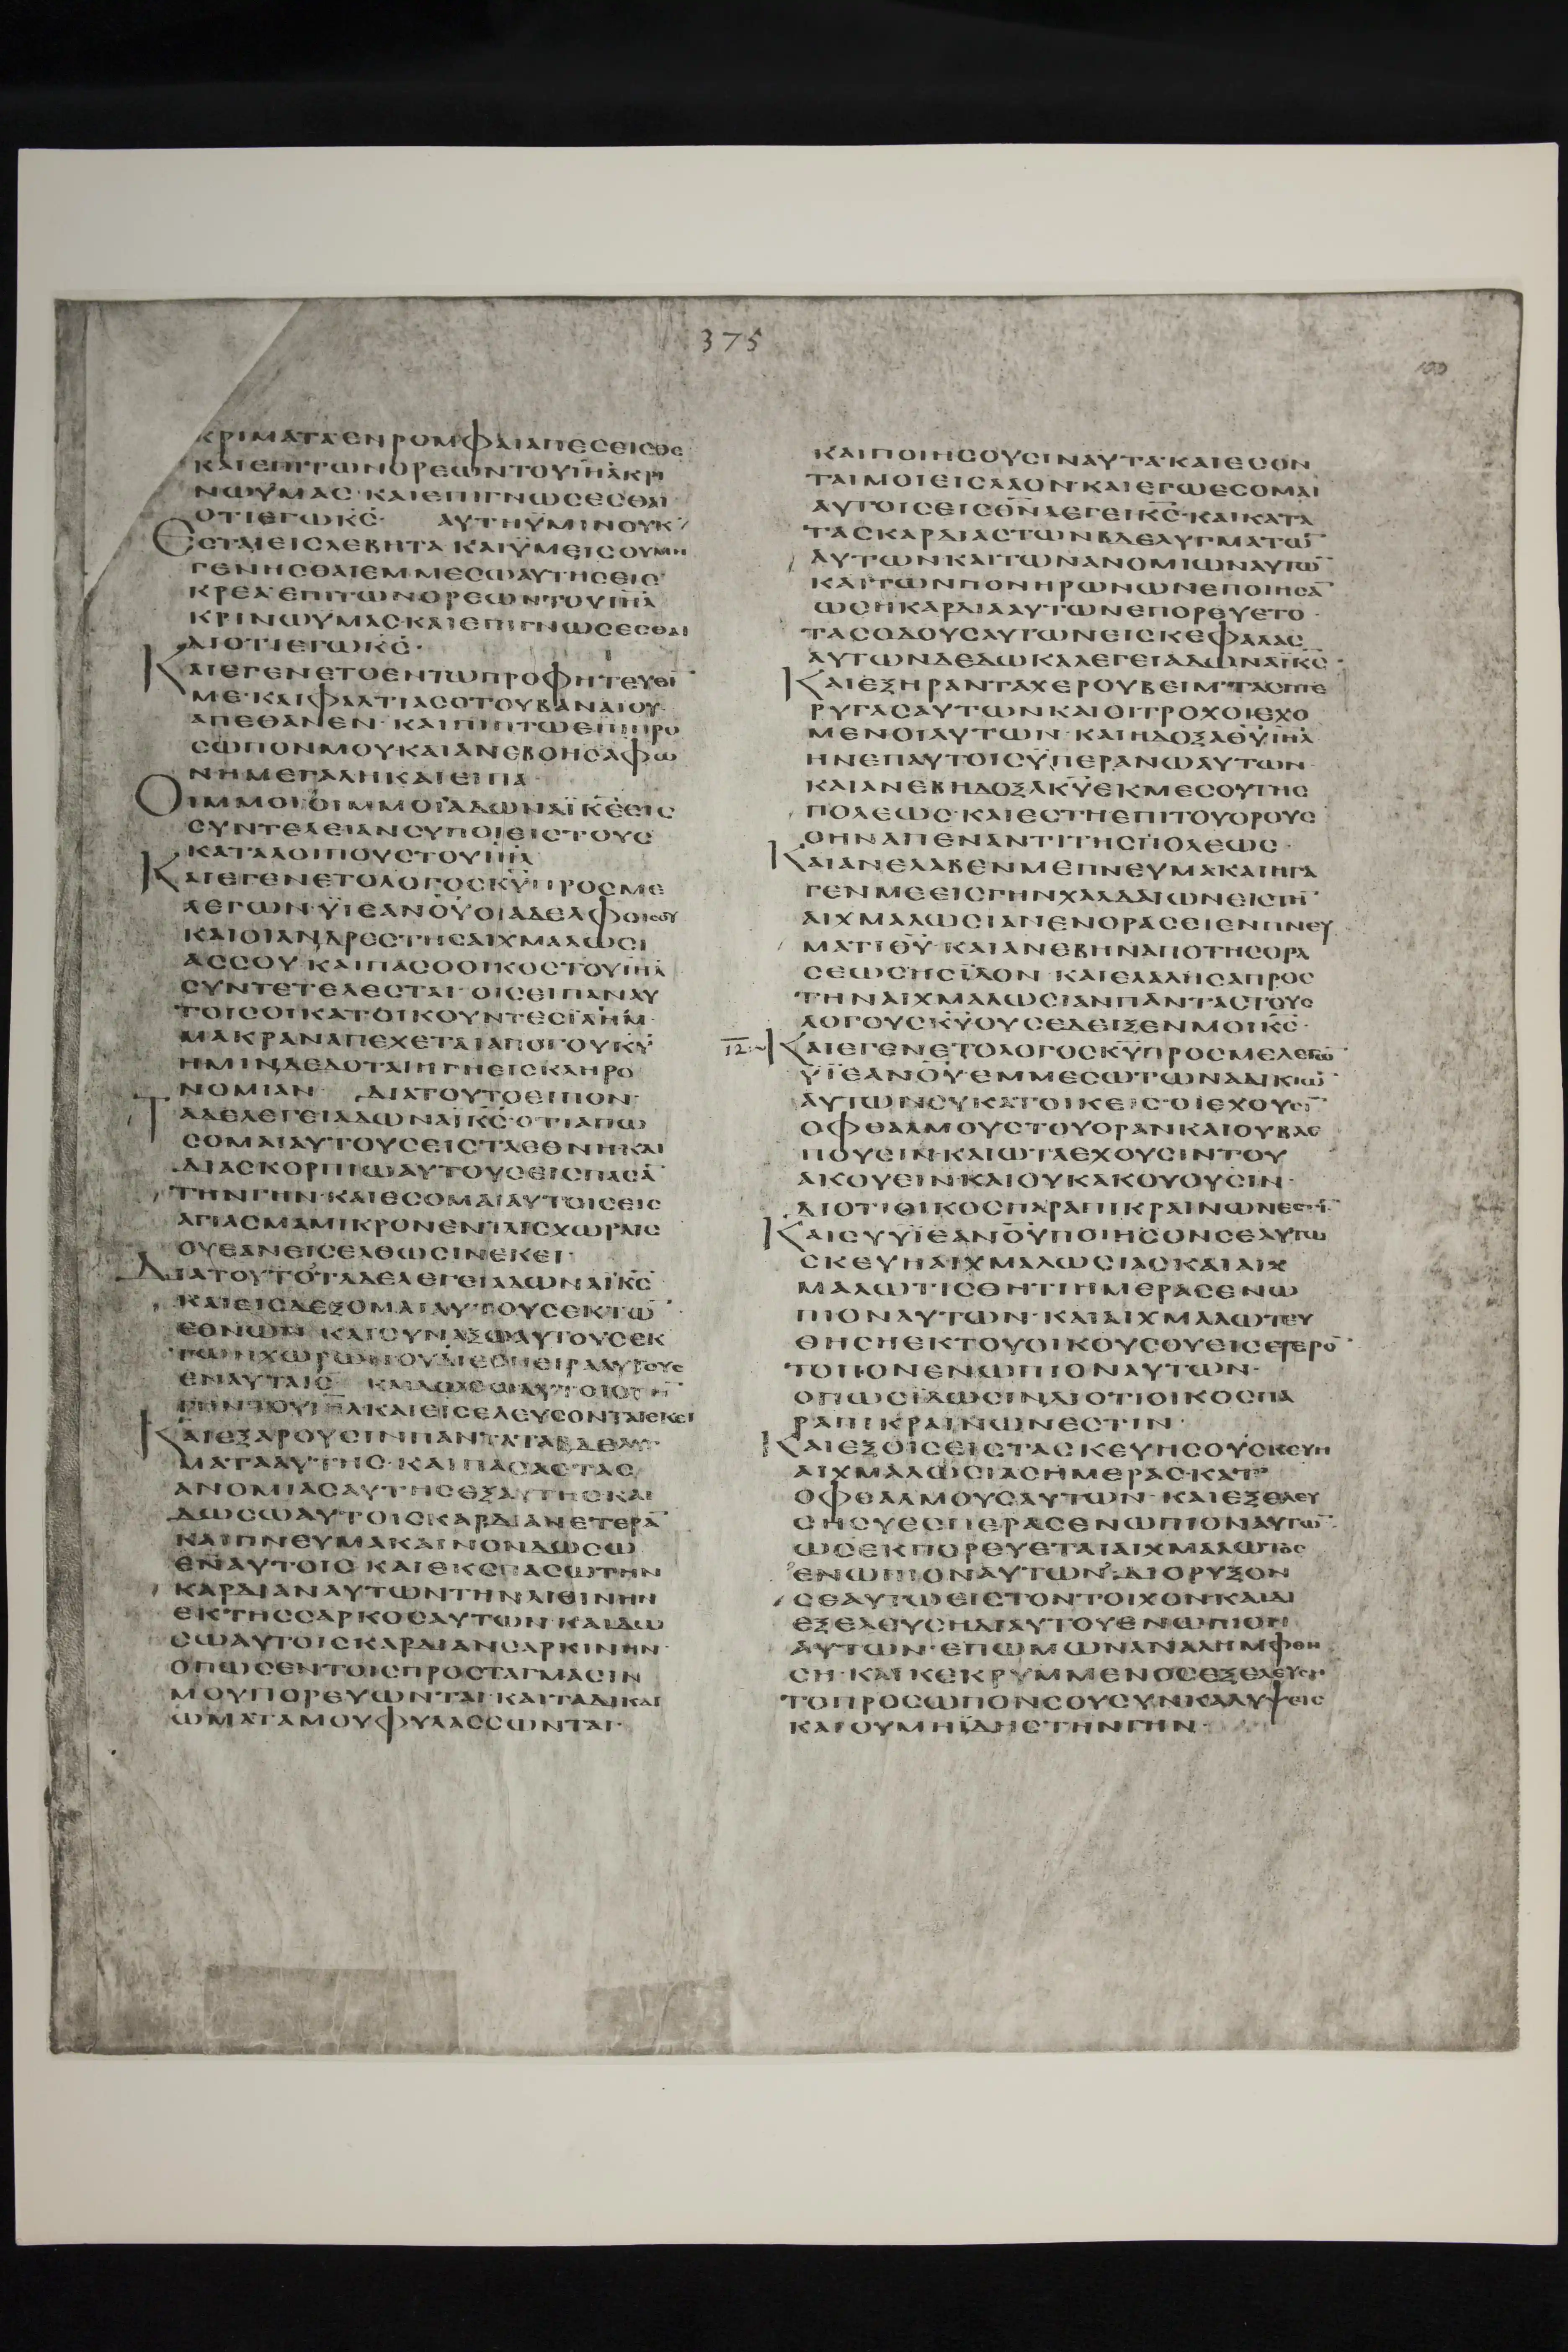 375
100
ΚΡΙΜΑΤΑ ΕΝ ΡΟΜΦΑΙΑ ΠΕΣΕΙΣΘΕ
ΚΑΙ ΕΠΙ ΤΩΝ ΟΡΕΩΝ ΤΟΥ ΙΗΛ ΚΡΙ
ΝΩ ΥΜΑΣ· ΚΑΙ ΕΠΙΓΝΩΣΕΣΘΑΙ
ΟΤΙ ΕΓΩ ΚΣ· ΑΥΤΗ ΥΜΙΝ ΟΥΚ
ΕΣΤΑΙ ΕΙΣ ΛΕΒΗΤΑ ΚΑΙ ΥΜΕΙΣ ΟΥ ΜΗ
ΓΕΝΗΣΘΑΙ ΕΜ ΜΕΣΩ ΑΥΤΗΣ ΕΙΣ
ΚΡΕΑ· ΕΠΙ ΤΩΝ ΟΡΕΩΝ ΤΟΥ ΙΗΛ
ΚΡΙΝΩ ΥΜΑΣ· ΚΑΙ ΕΠΙΓΝΩΣΕΣΘΑΙ
ΔΙΟΤΙ ΕΓΩ ΚΣ·
ΚΑΙ ΕΓΕΝΕΤΟ ΕΝ ΤΩ ΠΡΟΦΗΤΕΥΕΙ
ΜΕ· ΚΑΙ ΦΑΛΤΙΑΣ Ο ΤΟΥ ΒΑΝΑΙΟΥ
ΑΠΕΘΑΝΕΝ· ΚΑΙ ΠΙΠΤΩ ΕΠΙ ΠΡΟ
ΣΩΠΟΝ ΜΟΥ ΚΑΙ ΑΝΕΒΟΗΣΑ ΦΩ
ΝΗ ΜΕΓΑΛΗ ΚΑΙ ΕΙΠΑ·
ΟΙΜΜΟΙ ΟΙΜΜΟΙ ΑΔΩΝΑΙ ΚΕ ΕΙΣ
ΣΥΝΤΕΛΕΙΑΝ ΣΥ ΠΟΙΕΙΣ ΤΟΥΣ
ΚΑΤΑΛΟΙΠΟΥΣ ΤΟΥ ΙΗΛ
ΚΑΙ ΕΓΕΝΕΤΟ ΛΟΓΟΣ ΚΥ ΠΡΟΣ ΜΕ
ΛΕΓΩΝ· ΥΙΕ ΑΝΟΥ ΟΙ ΑΔΕΛΦΟΙ ΣΟΥ
ΚΑΙ ΟΙ ΑΝΔΡΕΣ ΤΗΣ ΑΙΧΜΑΛΩΣΙ
ΑΣ ΣΟΥ· ΚΑΙ ΠΑΣ Ο ΟΙΚΟΣ ΤΟΥ ΙΗΛ
ΣΥΝΤΕΤΕΛΕΣΤΑΙ· ΟΙΣ ΕΙΠΑΝ ΑΥ
ΤΟΙΣ ΟΙ ΚΑΤΟΙΚΟΥΝΤΕΣ ΙΛΗΜ·
ΜΑΚΡΑΝ ΑΠΕΧΕΤΑΙ ΑΠΟ ΤΟΥ ΚΥ
ΗΜΙΝ ΔΕΔΟΤΑΙ Η ΓΗ ΕΙΣ ΚΛΗΡΟ
ΝΟΜΙΑΝ ΔΙΑ ΤΟΥΤΟ ΕΙΠΟΝ·
ΤΑΔΕ ΛΕΓΕΙ ΑΔΩΝΑΙ ΚΣ· ΟΤΙ ΑΠΩ
ΣΟΜΑΙ ΑΥΤΟΥΣ ΕΙΣ ΤΑ ΕΘΝΗ· ΚΑΙ
ΔΙΑΣΚΟΡΠΙΩ ΑΥΤΟΥΣ ΕΙΣ ΠΑΣΑ
ΤΗΝ ΓΗΝ· ΚΑΙ ΕΣΟΜΑΙ ΑΥΤΟΙΣ ΕΙΣ
ΑΓΙΑΣΜΑ ΜΙΚΡΟΝ ΕΝ ΤΑΙΣ ΧΩΡΑΙΣ
ΟΥ ΕΑΝ ΕΙΣΕΛΘΩΣΙΝ ΕΚΕΙ·
ΔΙΑ ΤΟΥΤΟ ΤΑΔΕ ΛΕΓΕΙ ΑΔΩΝΑΙ ΚΣ
ΚΑΙ ΕΙΣΔΕΞΟΜΑΙ ΑΥΤΟΥΣ ΕΚ ΤΩ
ΕΘΝΩΝ ΚΑΙ ΣΥΝΑΞΩ ΑΥΤΟΥΣ ΕΚ
ΤΩΝ ΧΩΡΩΝ ΟΥ ΔΙΕΣΠΕΙΡΑ ΑΥΤΟΥΣ
ΕΝ ΑΥΤΑΙΣ ΚΑΙ ΔΩΣΩ ΑΥΤΟΙΣ ΤΗ
ΓΗΝ ΤΟΥ ΙΗΛ ΚΑΙ ΕΙΣΕΛΕΥΣΟΝΤΑΙ ΕΚΕΙ
ΚΑΙ ΕΞΑΡΟΥΣΙΝ ΠΑΝΤΑ ΤΑ ΒΔΕΛΥΓ
ΜΑΤΑ ΑΥΤΗΣ· ΚΑΙ ΠΑΣΑΣ ΤΑΣ
ΑΝΟΜΙΑΣ ΑΥΤΗΣ ΕΞ ΑΥΤΗΣ ΚΑΙ
ΔΩΣΩ ΑΥΤΟΙΣ ΚΑΡΔΙΑΝ ΕΤΕΡΑ
ΚΑΙ ΠΝΕΥΜΑ ΚΑΙΝΟΝ ΔΩΣΩ
ΕΝ ΑΥΤΟΙΣ ΚΑΙ ΕΚΣΠΑΣΩ ΤΗΝ
ΚΑΡΔΙΑΝ ΑΥΤΩΝ ΤΗΝ ΛΙΘΙΝΗΝ
ΕΚ ΤΗΣ ΣΑΡΚΟΣ ΑΥΤΩΝ· ΚΑΙ ΔΩ
ΣΩ ΑΥΤΟΙΣ ΚΑΡΔΙΑΝ ΣΑΡΚΙΝΗΝ·
ΟΠΩΣ ΕΝ ΤΟΙΣ ΠΡΟΣΤΑΓΜΑΣΙΝ
ΜΟΥ ΠΟΡΕΥΩΝΤΑΙ· ΚΑΙ ΤΑ ΔΙΚΑΙ
ΩΜΑΤΑ ΜΟΥ ΦΥΛΑΣΣΩΝΤΑΙ·
ΚΑΙ ΠΟΙΗΣΟΥΣΙΝ ΑΥΤΑ· ΚΑΙ ΕΣΟΝ
ΤΑΙ ΜΟΙ ΕΙΣ ΛΑΟΝ· ΚΑΙ ΕΓΩ ΕΣΟΜΑΙ
ΑΥΤΟΙΣ ΕΙΣ ΘΝ ΛΕΓΕΙ ΚΣ· ΚΑΙ ΚΑΤΑ
ΤΑΣ ΚΑΡΔΙΑΣ ΤΩΝ ΒΔΕΛΥΓΜΑΤΩ
ΑΥΤΩΝ ΚΑΙ ΤΩΝ ΑΝΟΜΙΩΝ ΑΥΤΩ
ΚΑΙ ΤΩΝ ΠΟΝΗΡΩΝ ΩΝ ΕΠΟΙΗΣΑ
ΩΣ Η ΚΑΡΔΙΑ ΑΥΤΩΝ ΕΠΟΡΕΥΕΤΟ·
ΤΑΣ ΟΔΟΥΣ ΑΥΤΩΝ ΕΙΣ ΚΕΦΑΛΑΣ
ΑΥΤΩΝ ΔΕΔΩΚΑ ΛΕΓΕΙ ΑΔΩΝΑΙ ΚΣ·
ΚΑΙ ΕΞΗΡΑΝ ΤΑ ΧΕΡΟΥΒΕΙΜ· ΤΑΣ ΠΤΕ
ΡΥΓΑΣ ΑΥΤΩΝ ΚΑΙ ΟΙ ΤΡΟΧΟΙ ΕΧΟ
ΜΕΝΟΙ ΑΥΤΩΝ· ΚΑΙ Η ΔΟΞΑ ΘΥ ΙΗΛ
ΗΝ ΕΠ ΑΥΤΟΙΣ ΥΠΕΡΑΝΩ ΑΥΤΩΝ·
ΚΑΙ ΑΝΕΒΗ ΔΟΞΑ ΚΥ ΕΚ ΜΕΣΟΥ ΤΗΣ
ΠΟΛΕΩΣ· ΚΑΙ ΕΣΤΗ ΕΠΙ ΤΟΥ ΟΡΟΥΣ
Ο ΗΝ ΑΠΕΝΑΝΤΙ ΤΗΣ ΠΟΛΕΩΣ·
ΚΑΙ ΑΝΕΛΑΒΕΝ ΜΕ ΠΝΕΥΜΑ ΚΑΙ ΗΓΑ
ΓΕΝ ΜΕ ΕΙΣ ΓΗΝ ΧΑΛΔΑΙΩΝ ΕΙΣ ΤΗ
ΑΙΧΜΑΛΩΣΙΑΝ ΕΝ ΟΡΑΣΕΙ ΕΝ ΠΝΕΥ
ΜΑΤΙ ΘΥ· ΚΑΙ ΑΝΕΒΗΝ ΑΠΟ ΤΗΣ ΟΡΑ
ΣΕΩΣ ΗΣ ΙΔΟΝ ΚΑΙ ΕΛΑΛΗΣΑ ΠΡΟΣ
ΤΗΝ ΑΙΧΜΑΛΩΣΙΑΝ ΠΑΝΤΑΣ ΤΟΥΣ
ΛΟΓΟΥΣ ΚΥ ΟΥΣ ΕΔΕΙΞΕΝ ΜΟΙ ΚΣ·
12
ΚΑΙ ΕΓΕΝΕΤΟ ΛΟΓΟΣ ΚΥ ΠΡΟΣ ΜΕ ΛΕΓΩ
ΥΙΕ ΑΝΟΥ· ΕΜ ΜΕΣΩ ΤΩΝ ΑΔΙΚΙΩ
ΑΥΤΩΝ ΣΥ ΚΑΤΟΙΚΕΙΣ· ΟΙ ΕΧΟΥΣΙ
ΟΦΘΑΛΜΟΥΣ ΤΟΥ ΟΡΑΝ ΚΑΙ ΟΥ ΒΛΕ
ΠΟΥΣΙΝ· ΚΑΙ ΩΤΑ ΕΧΟΥΣΙΝ ΤΟΥ
ΑΚΟΥΕΙΝ· ΚΑΙ ΟΥΚ ΑΚΟΥΟΥΣΙΝ·
ΔΙΟΤΙ ΟΙΚΟΣ ΠΑΡΑΠΙΚΡΑΙΝΩΝ ΕΣΤΙ
ΚΑΙ ΣΥ ΥΙΕ ΑΝΟΥ ΠΟΙΗΣΟΝ ΣΕΑΥΤΩ
ΣΚΕΥΗ ΑΙΧΜΑΛΩΣΙΑΣ ΚΑΙ ΑΙΧ
ΜΑΛΩΤΙΣΘΗΤΙ ΗΜΕΡΑΣ ΕΝΩ
ΠΙΟΝ ΑΥΤΩΝ· ΚΑΙ ΑΙΧΜΑΛΩΤΕΥ
ΘΗΣΗ ΕΚ ΤΟΥ ΟΙΚΟΥ ΣΟΥ ΕΙΣ ΕΤΕΡΟ
ΤΟΠΟΝ ΕΝΩΠΙΟΝ ΑΥΤΩΝ·
ΟΠΩΣ ΙΔΩΣΙΝ ΔΙΟΤΙ ΟΙΚΟΣ ΠΑ
ΡΑΠΙΚΡΑΙΝΩΝ ΕΣΤΙΝ·
ΚΑΙ ΕΞΟΙΣΕΙΣ ΤΑ ΣΚΕΥΗ ΣΟΥ ΣΚΕΥΗ
ΑΙΧΜΑΛΩΣΙΑΣ ΗΜΕΡΑΣ· ΚΑΤ
ΟΦΘΑΛΜΟΥΣ ΑΥΤΩΝ· ΚΑΙ ΕΞΕΛΕΥ
ΣΗ ΣΥ ΕΣΠΕΡΑΣ ΕΝΩΠΙΟΝ ΑΥΤΩ
ΩΣ ΕΚΠΟΡΕΥΕΤΑΙ ΑΙΧΜΑΛΩΤΟΣ
ΕΝΩΠΙΟΝ ΑΥΤΩΝ· ΔΙΟΡΥΞΟΝ
ΣΕΑΥΤΩ ΕΙΣ ΤΟΝ ΤΟΙΧΟΝ ΚΑΙ ΔΙ
ΕΞΕΛΕΥΣΗ ΔΙ ΑΥΤΟΥ ΕΝΩΠΙΟΝ
ΑΥΤΩΝ· ΕΠ ΩΜΩΝ ΑΝΑΛΗΜΦΘΗ
ΣΗ· ΚΑΙ ΚΕΚΡΥΜΜΕΝΟΣ ΕΞΕΛΕΥΣΗ
ΤΟ ΠΡΟΣΩΠΟΝ ΣΟΥ ΣΥΝΚΑΛΥΨΕΙΣ
ΚΑΙ ΟΥ ΜΗ ΙΔΗΣ ΤΗΝ ΓΗΝ·